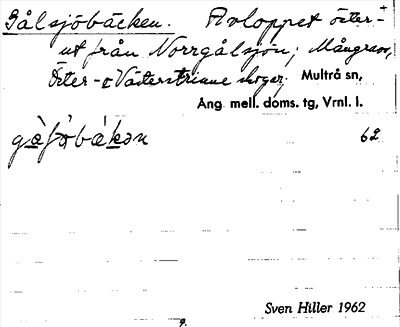 Gålsjöbäcken. Avloppet öster-
ut från Norrgålsjön; Mångsav,
Öster- o Västerstrinne skogar. Multrå sn,
Ång. mell. doms. tg, Vrnl. l.
62
Sven Hiller 1962
9.